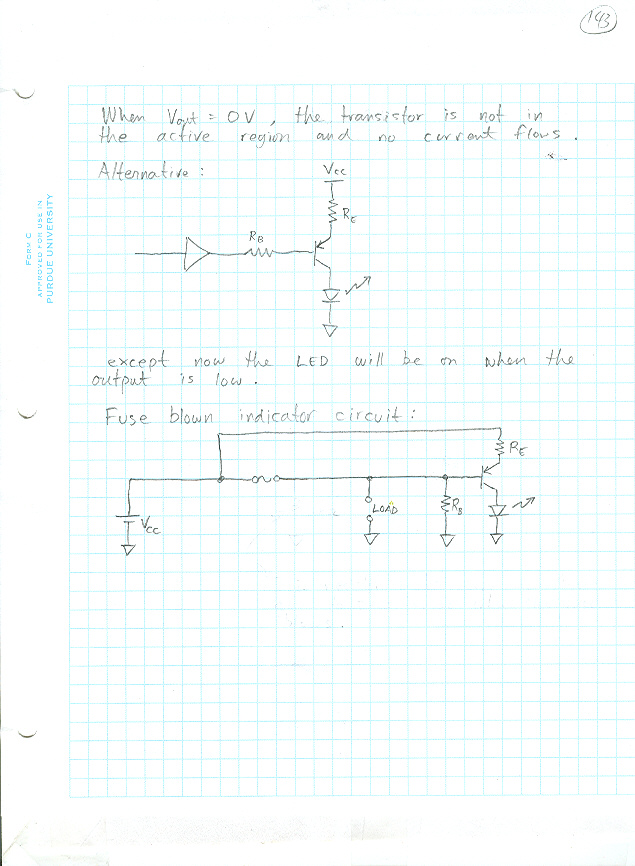 143
When Vout = 0V, the transistor is not in
the active region and no current flows.
Alternative:
Vcc
RE
RB
except now the LED will be on when the
output is low.
Fuse blown indicator circuit:
RE
LOAD
RB
Vcc
FORM C
APPROVED FOR USE IN
PURDUE UNIVERSITY